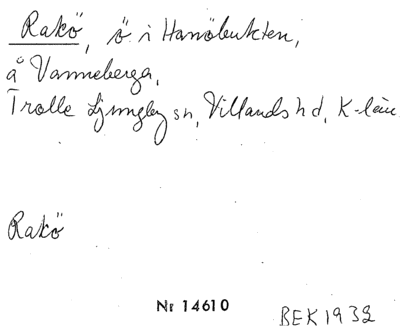 Rakö, ö i Hanöbukten,
å Vanneberga,
Trolle Ljungby sn, Villands hd, K-län
Rakö
Nr 14610
BEK 1932